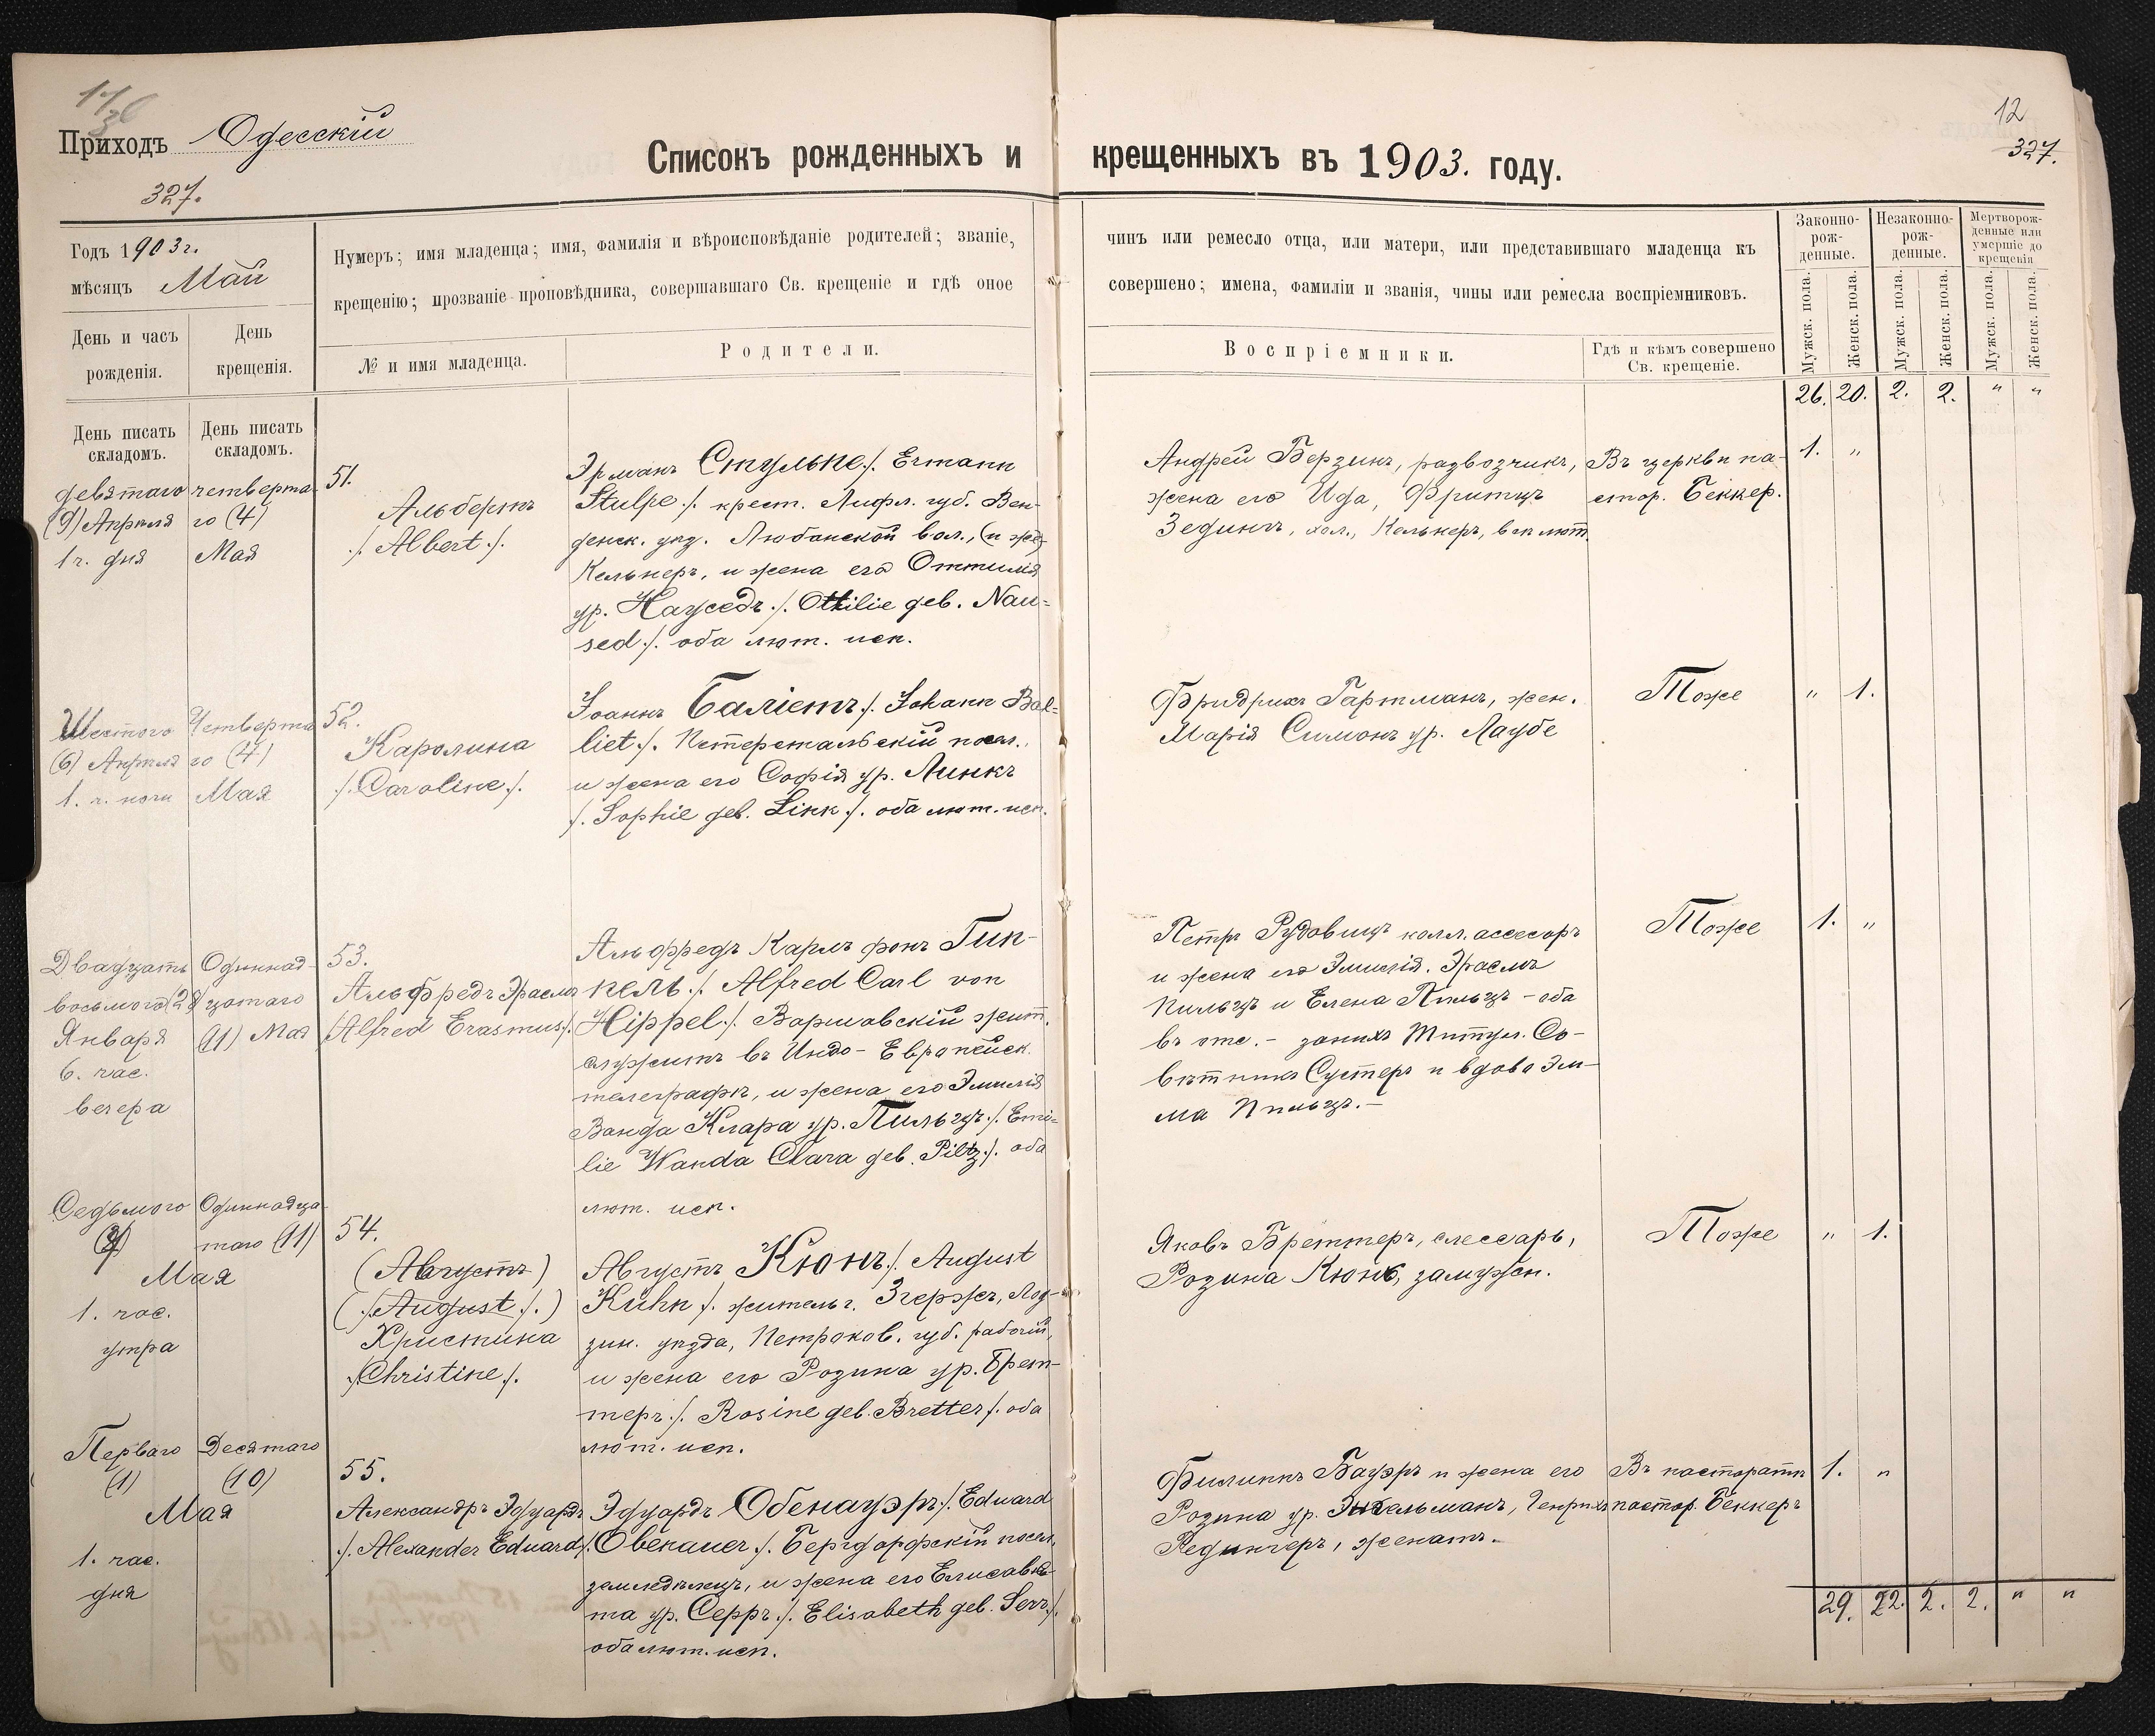 Приходъ Одесскій
327.
12
327.
Списокъ рожденныхъ и крещенныхъ въ 1903. году.
Годъ 1903 г.
мѣсяцъ Май
Нумеръ; имя младенца; имя, фамилія и вѣроисповѣданіе родителей; званіе, чинъ или ремесло отца, или матери, или представившаго младенца къ
крещенію; прозваніе проповѣдника, совершавшаго Св. крещеніе и гдѣ оное совершено; имена, фамиліи и званія, чины или ремесла воспріемниковъ.
День и часъ рожденія.
День крещенія.
№ и имя младенца.
Родители.
Воспріемники.
Гдѣ и кѣмъ совершено
Св. крещеніе.
Законно-
рож-
денные.
Незаконно-
рож-
денные.
Мертворож-
денные или
умершіе до
крещенія
Мужск. пола.
Женск. пола.
Мужск. пола.
Женск. пола.
Мужск. пола.
Женск. пола.
26. 20. 2. 2. " "
День писать
складомъ.
День писать
складомъ.
девятаго
(9) Апрѣля
1 ч. дня
четверта-
го (4)
Мая
51.
Альбертъ
/. Albert ./.
Эрманъ Стульпе ./. Ermann
Stulpe ./. крест. Лифл. губ. Вен-
денск. уѣз. Любанской вол.,
Кельнеръ, и жена его Оттилія
ур. Науседъ ./. Ottilie geb. Nau=
sed ./. оба лют. исп.
Андрей Берзинъ, развозчикъ,
жена его Ида, Фритцъ
Зединъ, хол., Кельнеръ, всѣ лют.
Въ церкви па-
стор. Беккер.
1. "
Шестого
(6) Апрѣля
1. ч. ночи
Четверта
го (4)
Мая
52.
Каролина
/. Caroline ./.
Іоаннъ Баліетъ ./. Johann Bal=
liet ./. Петерстальскій посел.,
и жена его Софія ур. Линкъ
/. Sophie geb. Link ./. оба лют. исп.
Фридрихъ Гартманъ, жен.
Марія Симонъ ур. Лаубе
Тоже
" 1.
Двадцать
восьмого (28)
Января
6. час.
вечера
Одиннад-
цатаго
(11) Мая
53.
Альфредъ Эрасмъ
/Alfred Erasmus ./.
Альфредъ Карлъ фонъ Гип-
пель ./. Alfred Carl von
Hippel ./. Варшавскій жит.
служитъ въ Индо-Европейск.
телеграфѣ, и жена его Эмилія
Ванда Клара ур. Пильцъ ./. Emi-
lie Wanda Clara geb. Piltz ./. оба
лют. исп.
Петръ Рудовицъ колл. ассесоръ
и жена его Эмилія. Эрасмъ
Пильцъ и Елена Пильцъ - оба
въ отс. - за нихъ Титул. Со-
вѣтникъ Сустеръ и вдова Эм-
ма Пильцъ. -
Тоже
1. "
Седьмого
(7)
Мая
1. час.
утра
Одиннадца
таго (11)
54.
(Августъ)
(./August ./.)
Христина
./Christine ./.
Августъ Кюнъ ./. August
Kühn ./. житель г. Згержъ, Лод-
зин. уѣзда, Петроков. губ. рабочій,
и жена его Розина ур. Брет-
теръ ./. Rosine geb. Bretter ./. оба
лют. исп.
Яковъ Бреттеръ, слесарь,
Розина Кюнъ, замужн.
Тоже
" 1.
Перваго
(1)
Мая
1. час.
дня
Десятаго
(10)
55.
Александръ Эдуардъ
/. Alexander Eduard ./.
Эдуардъ Обенауэръ ./. Eduard
Obenauer ./. Бергдорфскій посел.
земледѣлецъ, и жена его Елисаве
та ур. Серръ ./. Elisabeth geb. Serr ./.
оба лют. исп.
Филиппъ Бауэръ и жена его
Розина ур. Энгельманъ, Генрихъ
Редингеръ, женатъ.
Въ пасторатѣ
пастор. Беккеръ
1. "
29. 22. 2. 2. " "